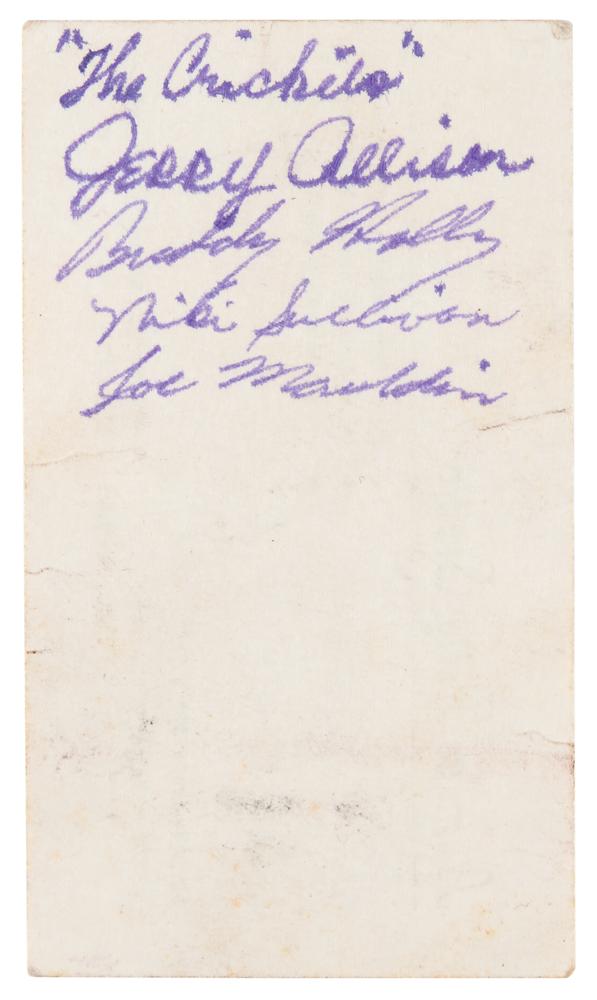 "The Crickits"
Jerry Allison
Buddy Holly
Niki Sullivan
Joe Mauldin